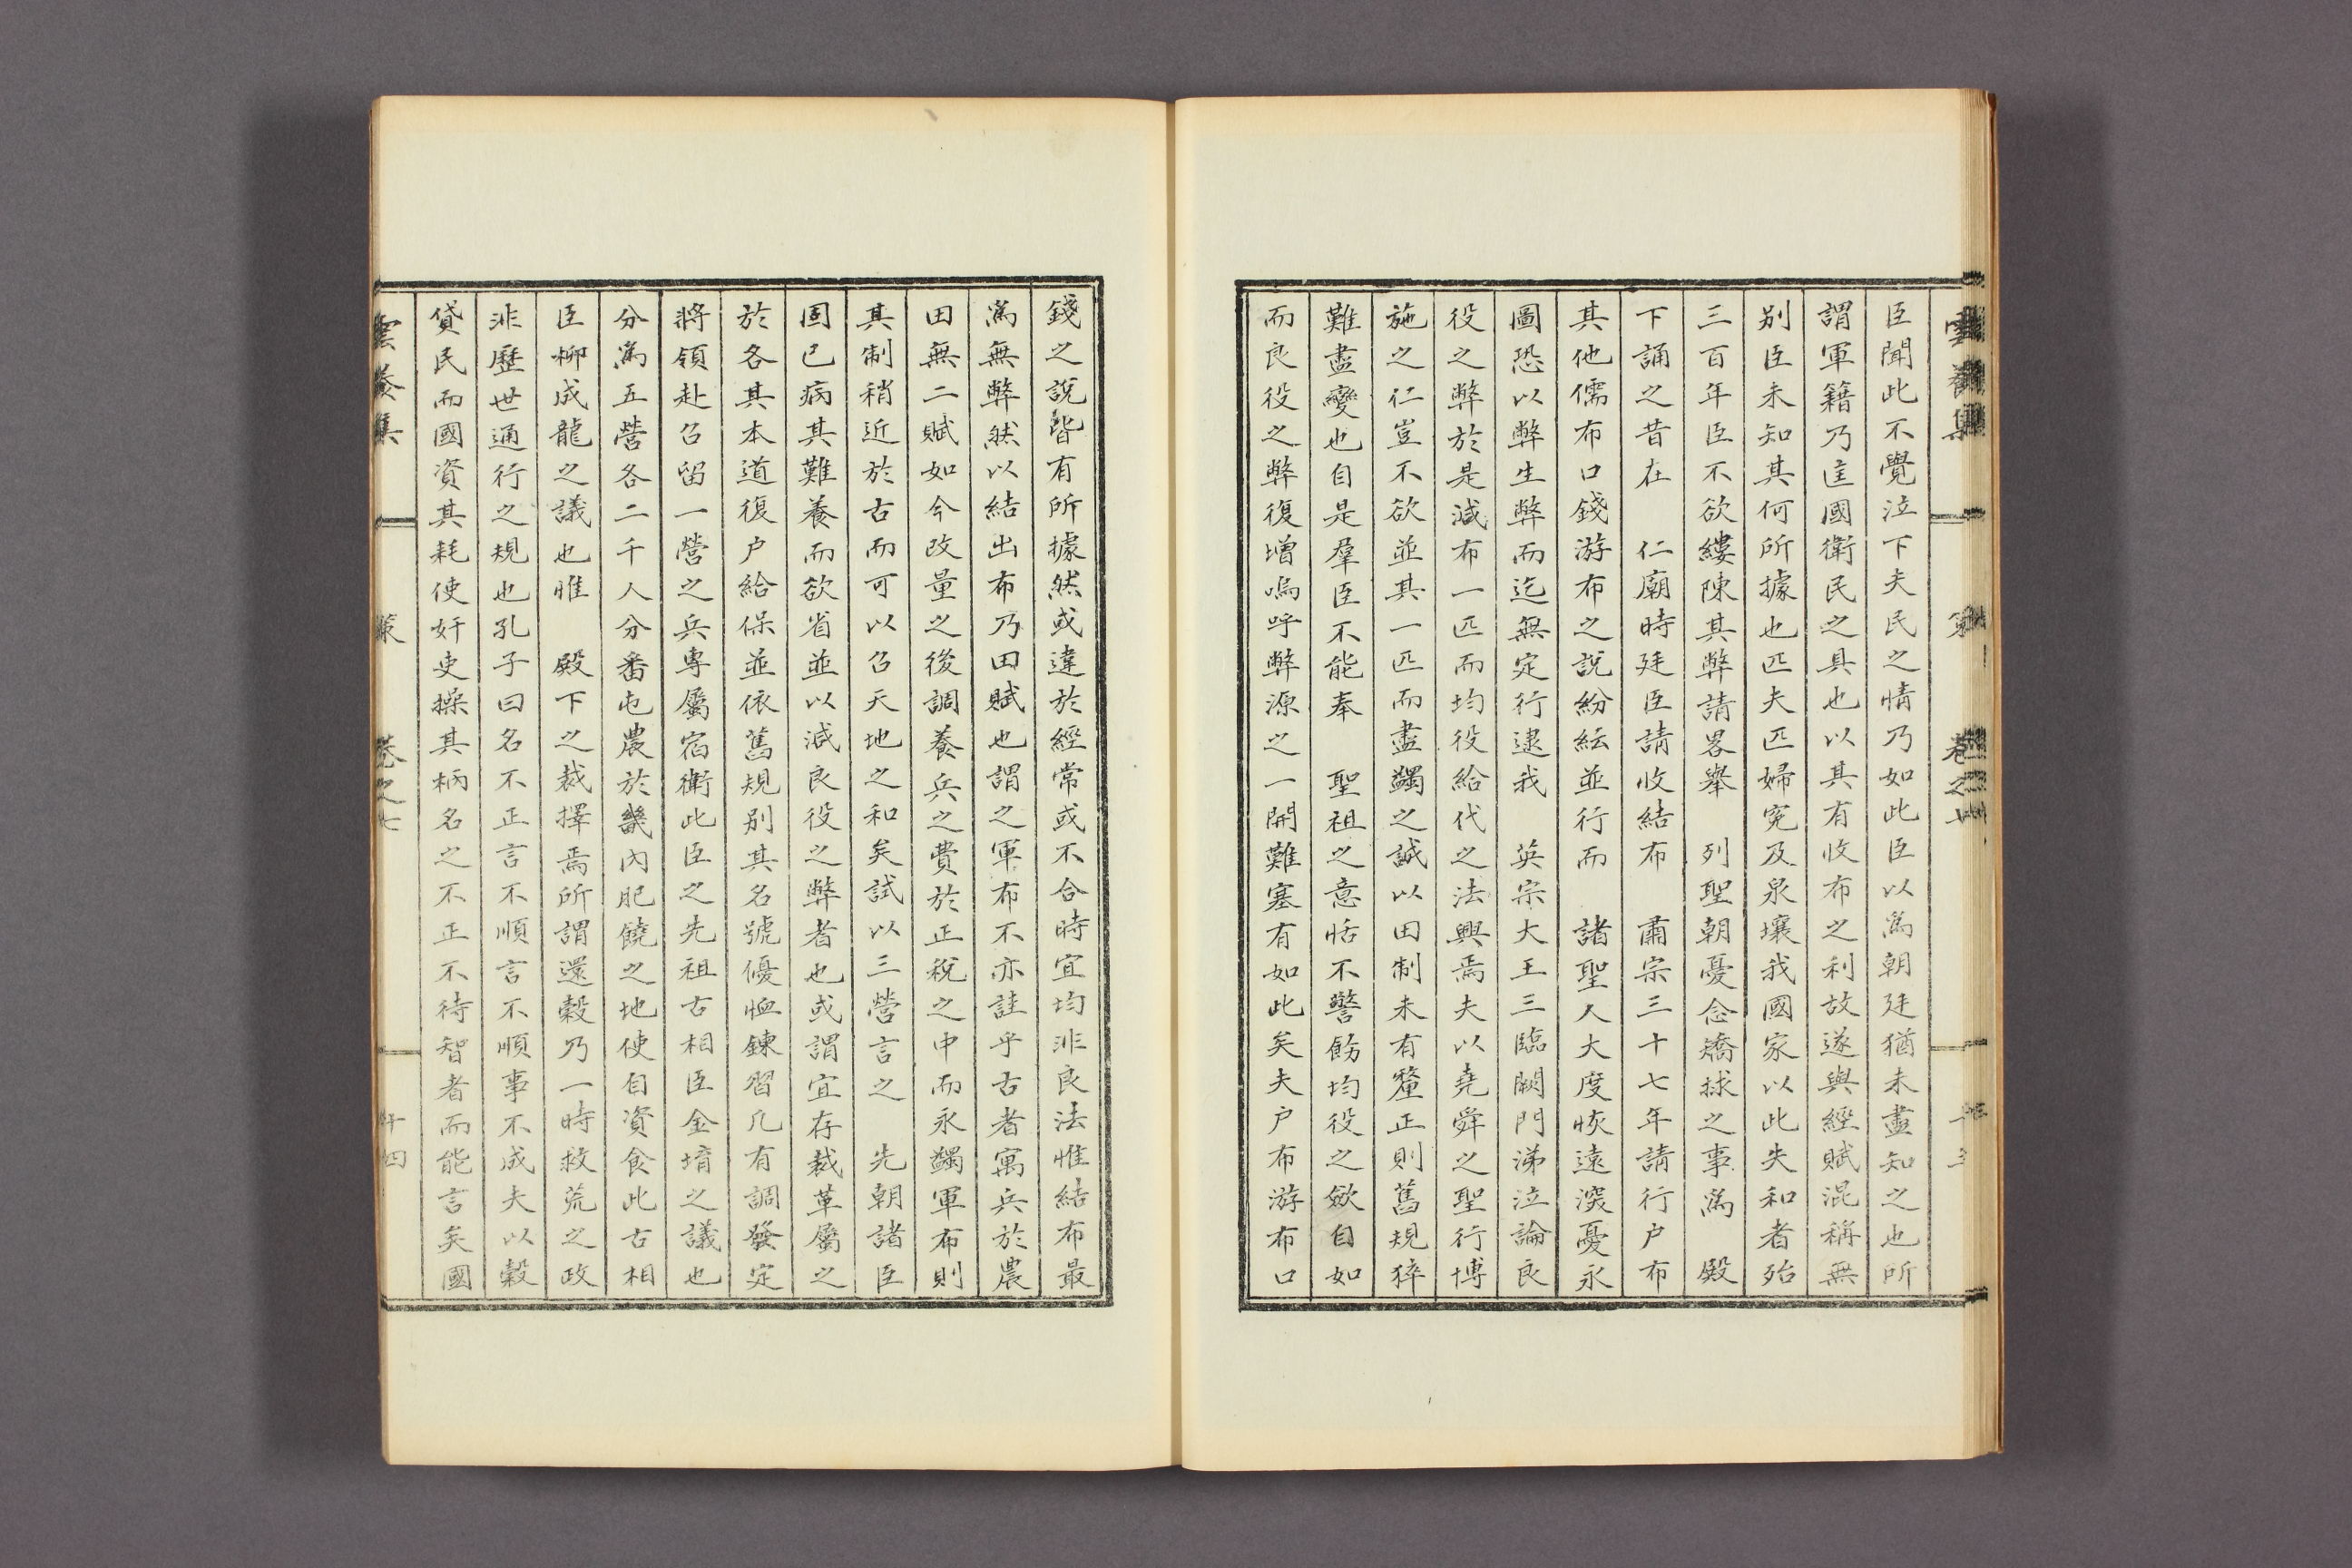 臣聞此不覺泣下夫民之情乃如此臣以為朝廷猶未盡知之也所
謂軍籍乃匡國衛民之具也以其有收布之利故遂與經賦混稱無
别臣未知其何所據也匹夫匹婦寃及泉壤我國家以此失和者殆
三百年臣不欲縷陳其弊請畧舉 列聖朝憂念矯捄之事為 殿
下誦之昔在 仁廟時廷臣請收結布 肅宗三十七年請行户布
其他儒布口錢游布之說紛紜並行而 諸聖人大度恢遠深憂永
圖恐以弊生弊而迄無定行逮我 英宗大王三臨闕門涕泣論良
役之弊於是減布一匹而均役給代之法興焉夫以堯舜之聖行博
施之仁豈不欲並其一匹而盡蠲之誠以田制未有釐正則舊規猝
難盡變也自是羣臣不能奉 聖祖之意恬不警飭均役之斂自如
而良役之弊復增嗚呼弊源之一開難塞有如此矣夫户布游布口
錢之說皆有所據然或違於經常或不合時宜均非良法惟結布最
為無弊然以結出布乃田賦也謂之軍布不亦詿乎古者寓兵於農
田無二賦如今改量之後調養兵之費於正稅之中而永蠲軍布則
其制稍近於古而可以召天地之和矣試以三營言之 先朝諸臣
固已病其難養而欲省並以減良役之弊者也或謂宜存裁革屬之
於各其本道復户給保並依舊規别其名號優恤鍊習凡有調發定
將領赴召留一營之兵專屬宿衛此臣之先祖古相臣金堉之議也
分為五營各二千人分番屯農於畿內肥饒之地使自資食此古相
臣柳成龍之議也惟 殿下之裁擇焉所謂還穀乃一時救荒之政
非歷世通行之規也孔子曰名不正言不順言不順事不成夫以穀
貸民而國資其耗使奸吏操其柄名之不正不待智者而能言矣國
雲養集 策 卷之七 十四